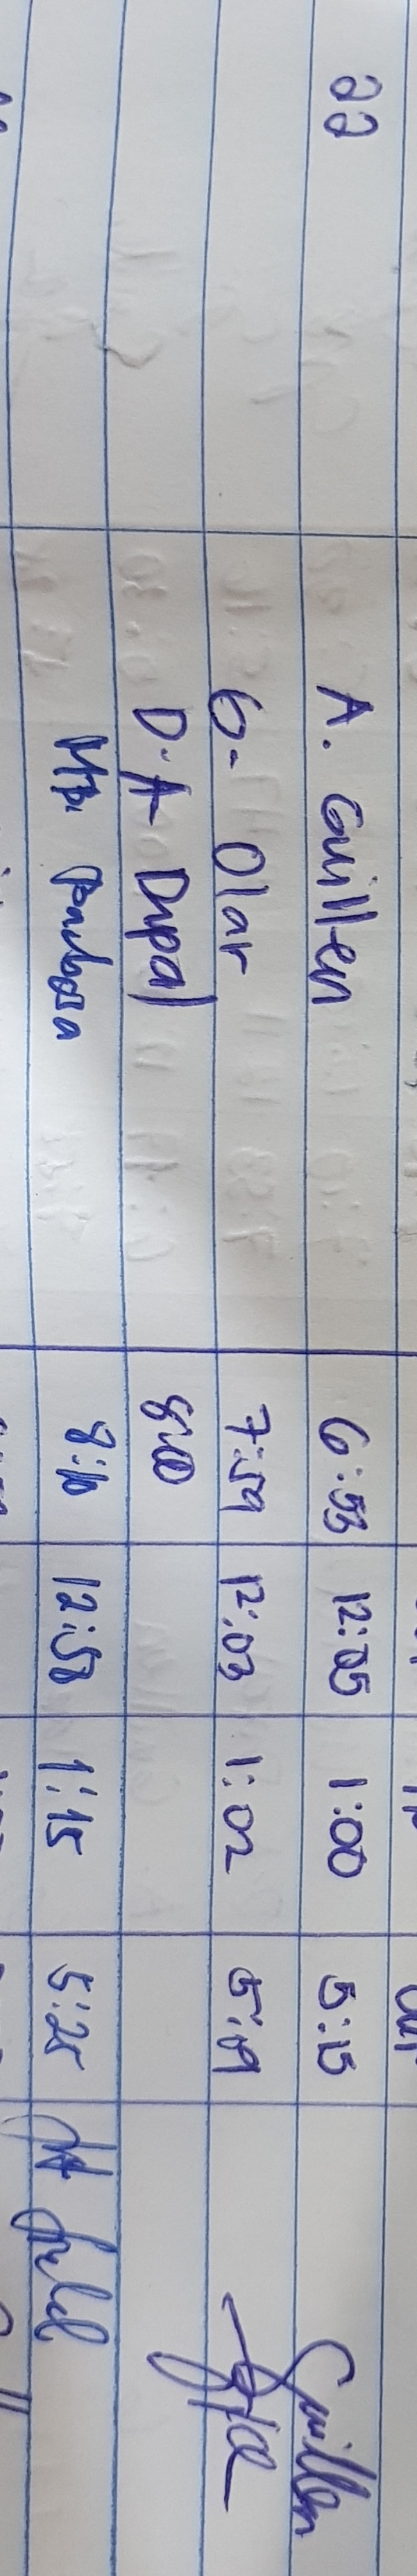 22 A. Guillen 6:53 12:05 1:00 5:15 Guillen
G. Olar 7:59 12:03 1:02 5:19
D.A Dupal 8:00
8:10 12:58 1:15 5:25